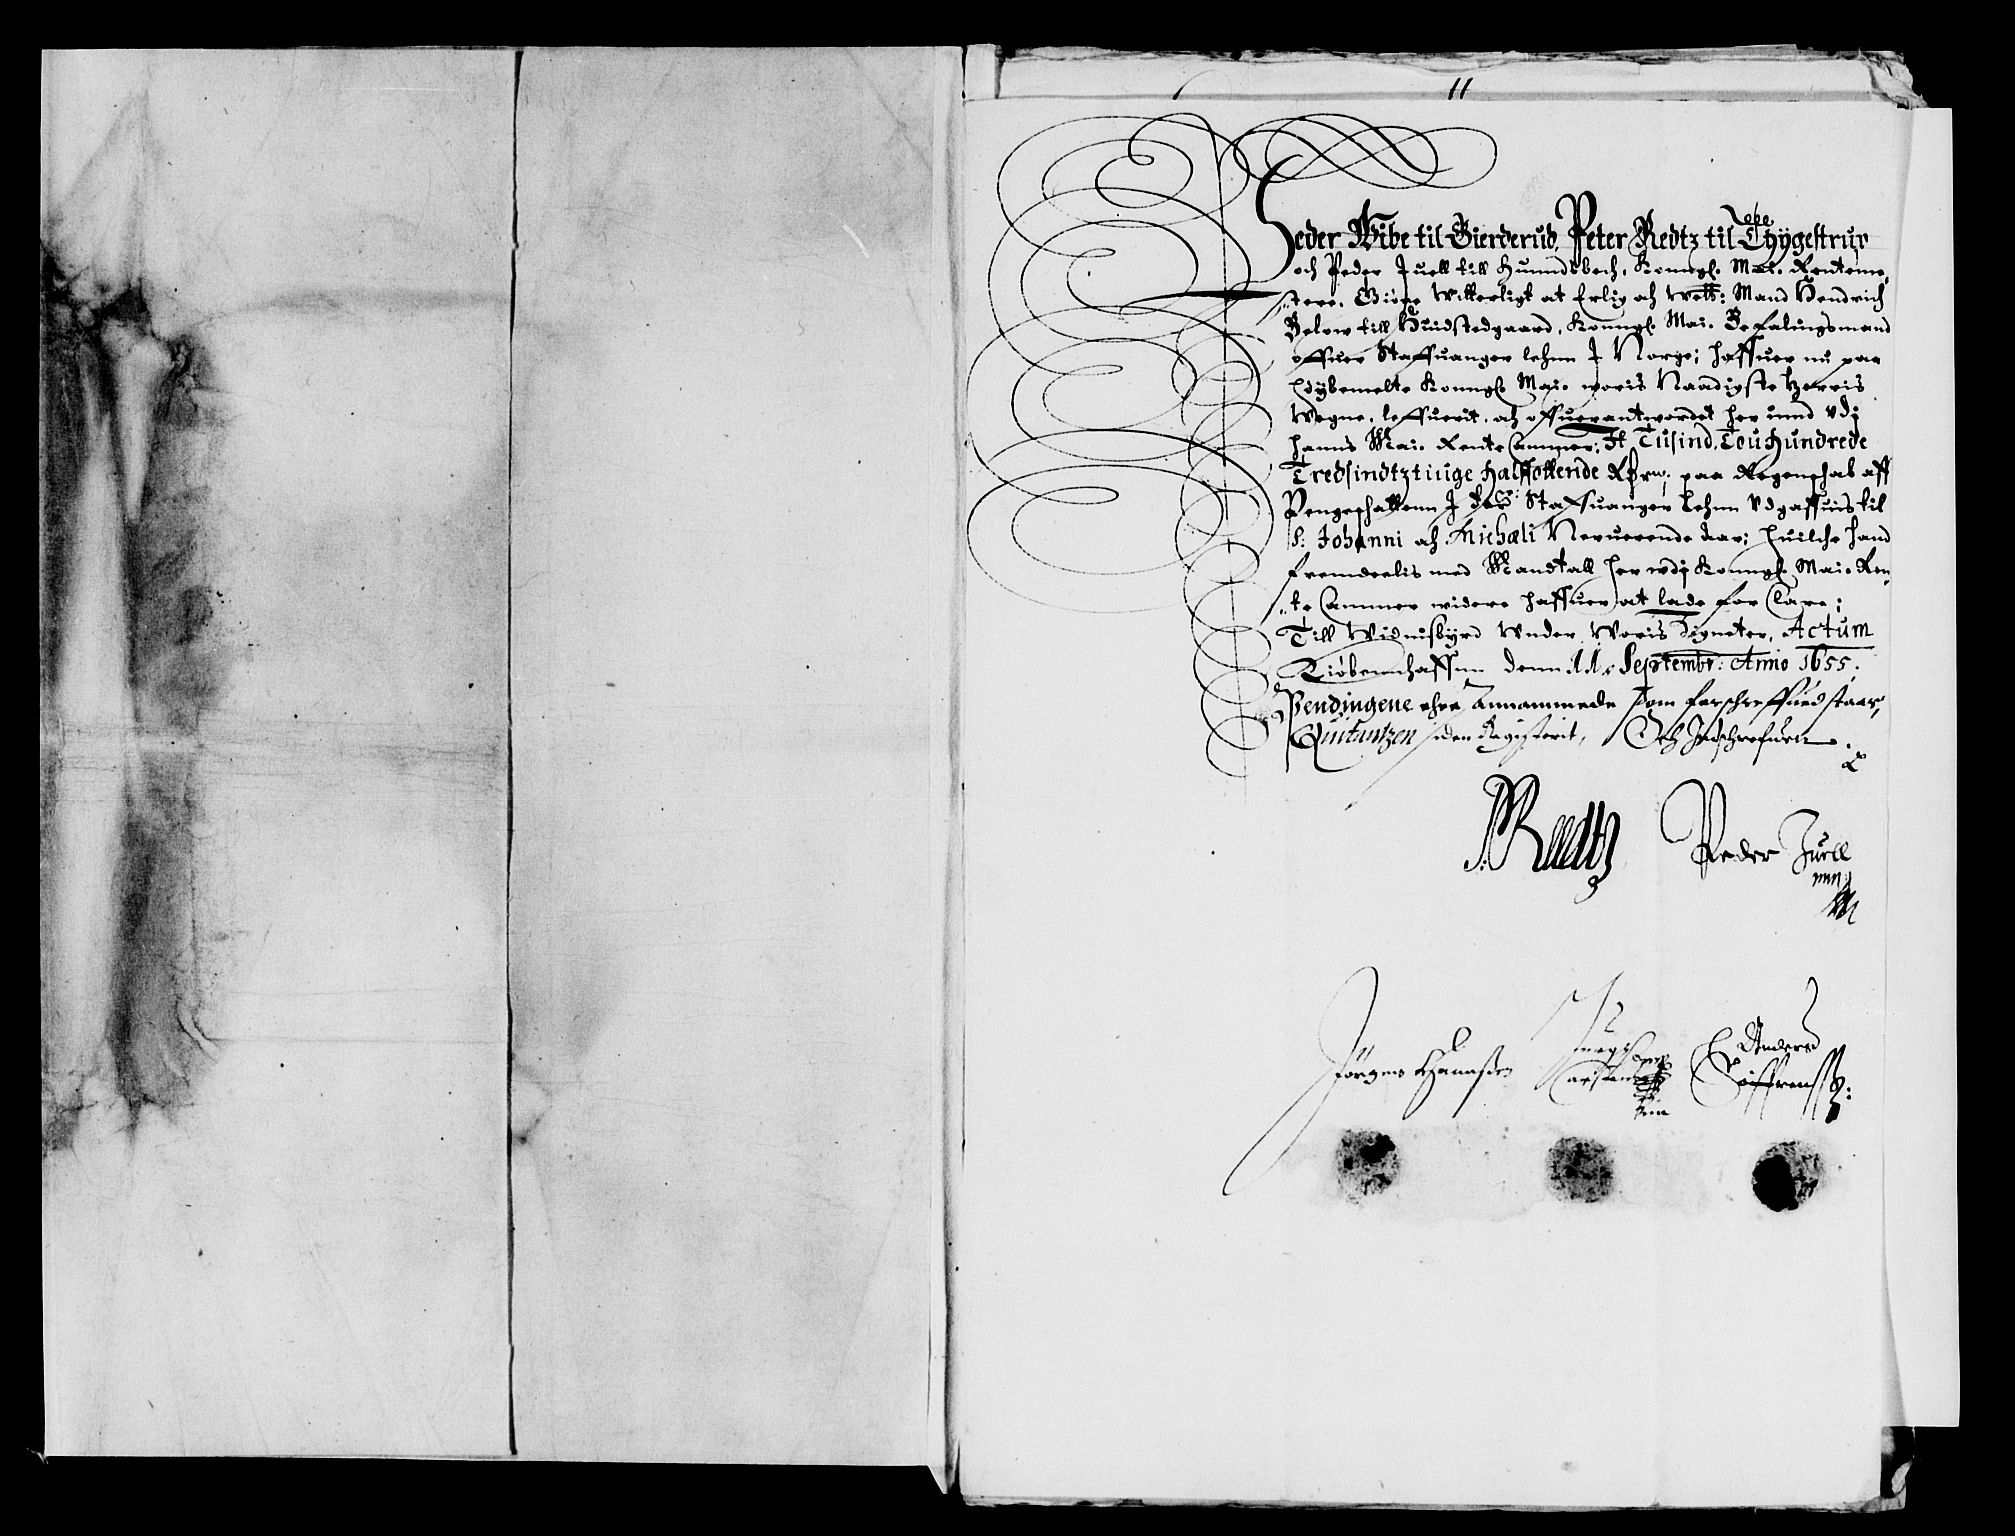 11
Peder Wibe til Gierderud, Peter Redtz til Thygestrup
och Peder Juell till Hunndsbech, Konngl: Mai. Renteme„
„stere. Giøre Witterligt at Erlig och Welb: Mand Hendrich
Below till Huidstedgaard, Konngl: Mai. Befalingsmand
offuer Staffuanger lehnn I Norge; haffuer nu paa
høybemelte Konngl: Mai. woris Naadigste Herris
Wegne, leffuerit, och offuerantwordet her innd vdj
hanns Mai. Rente Cammer; It Tusind, Tou hundrede
Tredsindtztiuge halffottende Rdr: paa Regenschab aff
Pengeschatten I Staffuanger Lehnn Vdgaffuis til
S: Johanni och Michæli Neruerende Aar; huilche hand
fremdeelis med Mandtall her vdj Konngl: Mai. Ren„
„te Cammer widere haffuer at lade for Clare;
Till Widnisbyrd Wnder Woris Zigneter, Actum
Kiøbennhaffnn denn 11. Septembr: Anno 1655.
Pendingene ehre Annammede som forschreffuedstaar,
Quitantzen iden Registerit, Och Indschrefuen.
P. Reedtz Peder Juell
mpp
Jörgen Hansen Anders
Søffrenss: